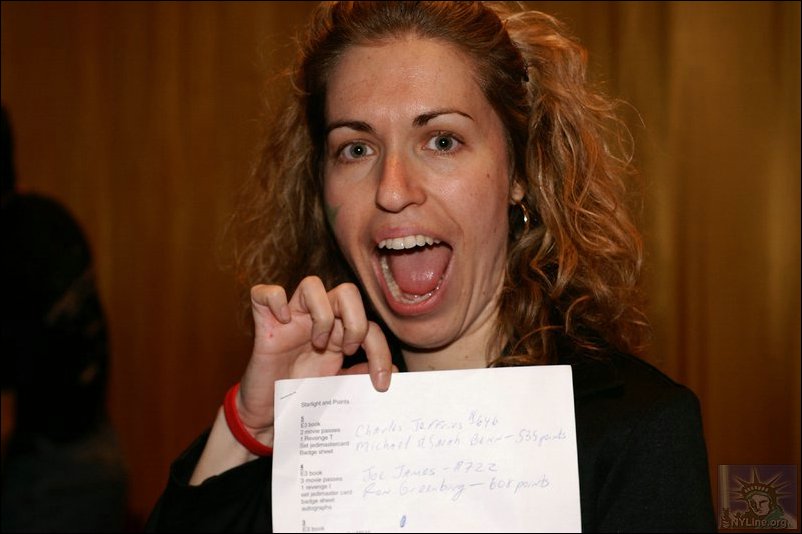 Starlight and Points
5
E3 book
3 movie passes
1 Revenge T
Set jedimastercard
Badge sheet
Charles Jeffries $646
Michael & Sarah Benn - 535 points
4
E3 book
3 movie passes
1 revenge t
set jedimaster card
badge sheet
autographs
Joe James - $722
Ron Greenburg - 608 points
3
E3 book
NYLine.org